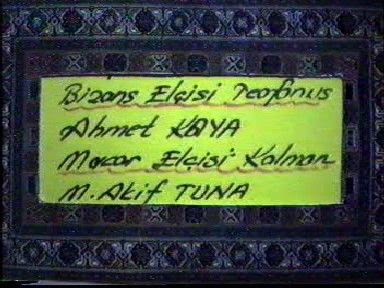 Bizans Elçisi Teofanus
Ahmet KAYA
Macar Elçisi Kalman
M. Akif TUNA